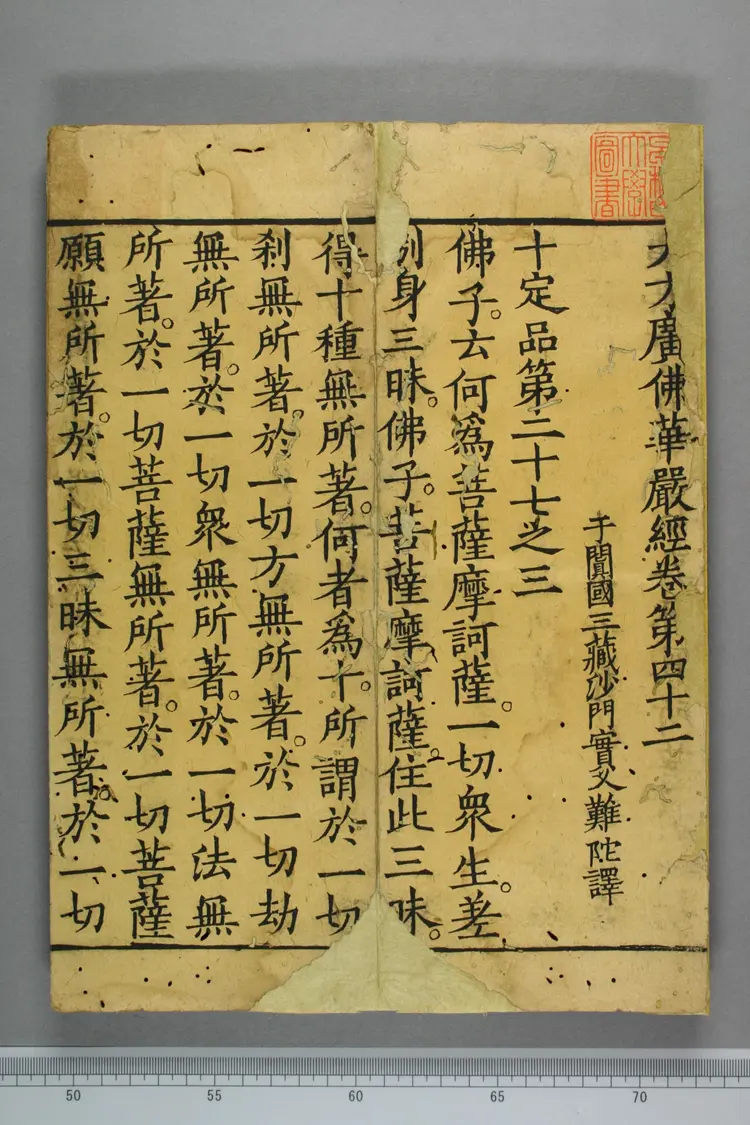 大方廣佛華嚴經卷第四十二
于闐國三藏沙門實叉難陀譯
十定品第二十七之三
佛子。云何爲菩薩摩訶薩。一切衆生。差
別身三昧。佛子。菩薩摩訶薩。住此三昧。
得十種無所著。何者爲十。所謂於一切
刹無所著。於一切方無所著。於一切劫
無所著。於一切衆無所著。於一切法無
所著。於一切菩薩無所著。於一切菩薩
願無所著。於一切三昧無所著。於一切
圖書
50 55 60 65 70